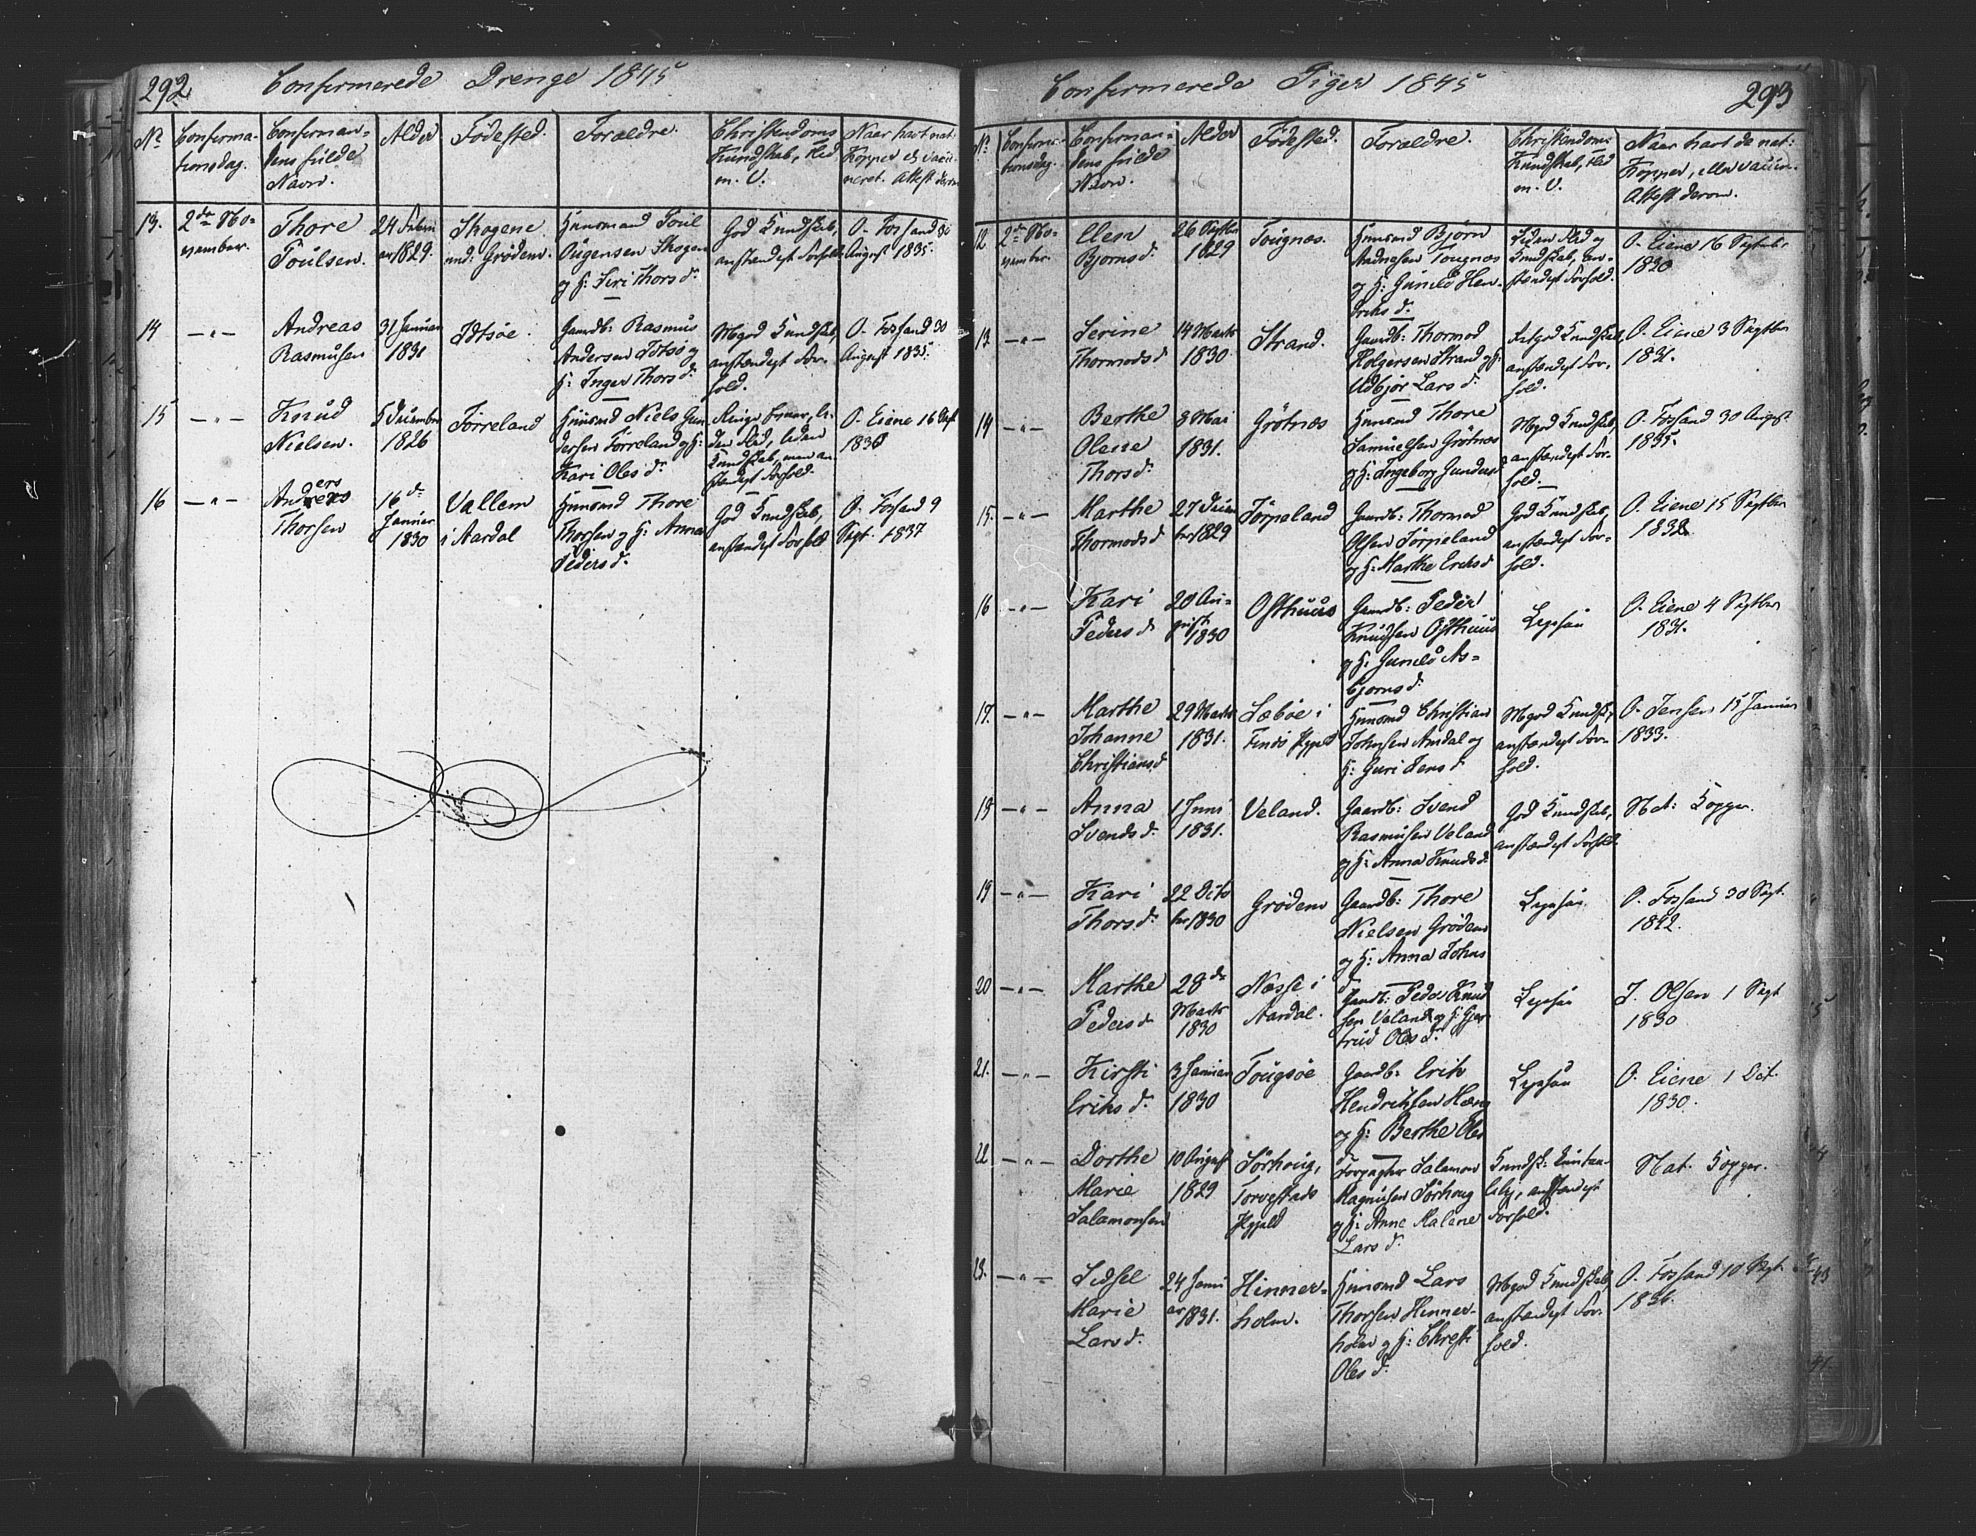 292
Confirmerede Drenge 1845
No
Confirma-
tionsdag.
Confirman-
dens fulde
Navn.
Alder
Fødested.
Forældre.
Christendoms
Kundskab, Flid
m. V.
Naar havt nat:
Kopper el vacci-
neret. Attest derom
13.
2den No-
vember.
Thore
Poulsen.
24 Febru
ar 1829.
Skogene
und. Grødem.
Huusmand Poul
Augensen Skogen
og H: Siri Thorsd:
God Kundskab,
anstændigt Forhold
O. Fossand 30
August 1835.
14
— „ —
Andreas
Rasmusen
31 Januar
1831
Idsøe.
Gaardb: Rasmus
Andersen Idsø og
H: Inger Thorsd:
Mgod Kundskab,
anstændigt For-
hold.
O. Fossand 30
August 1835.
15
— „ —
Knud
Nielsen.
5 December
1826
Tørreland
Huusmd Niels Gun
dersen Tørreland og H:
Kari Olesd:
Ringe Evner, li-
den Flid, liden
Kundskab, men an-
stændigt Forhold.
O. Eiene 16 Sept
1830
16
— „ —
Anders
Thorsen
16de
Januar
1830
Vallem
i Aardal
Huusmd Thore
Thorsen og H: Anna
Pedersd:
God Kundskab,
anstændigt Forhold
O. Fossand 9
Sept. 1837
Confirmerede Piger 1845
293
No
Confirma-
tionsdag.
Confirman-
dens fulde
Navn.
Alder
Fødested.
Forældre.
Christendoms
Kundskab, Flid
m. V.
Naar havt de nat:
Kopper, eller vaccin.
Attest derom.
12
2den No-
vember.
Elen
Bjørnsd:
26 Septbr
1829
Tougnæs.
Huusmd Bjørn
Andreasen Tougnæs
og H: Gunild Hen-
driksd:
Liden Flid og
Kundskab, an-
stændigt Forhold.
O. Eiene 16 Septbr
1830
13
— „ —
Serine
Thormodsd
14 Marts
1830.
Strand.
Gaardb: Thormod
Holgersen Strand og H:
Udbjør Larsd:
Mgod Kundskab,
anstændigt For-
hold.
O. Eiene 3 Septbr
1831.
14
— „ —
Berthe
Olene
Thorsd:
3 Mai
1831.
Grøtnæs
Huusmd Thore
Samuelsen Grøtnæs
og H: Ingeborg Gundersd
Mgod Kundskab,
anstændigt For-
hold.
O. Fossand 30 August
1835.
15.
— „ —
Marthe
Thormodsd
27 Decem
ber 1829
Jørpeland
Gaardb: Thormod
Olsen Jørpeland
og H: Marthe Eriksd
God Kundskab,
anstændigt For-
hold.
O. Eiene 15 Septbr
1832.
16
— „ —
Kari
Pedersd
20 Au-
gust 1830
Østhuus
Gaardb: Peder
Knudsen Østhuus
og H: Gunild As-
bjørnsd:
Ligesaa
O. Eiene 4 Septbr
1831.
17.
— „ —
Marthe
Johanne
Christiansd
29 Marts
1831.
Læbøe i
Findø Pgjæld
Huusmd Christian
Johnsen Amdal og
H: Guri Jensd:
Mgod Kundsk,
anstændigt For-
hold.
O. Jensen 15 Januar
1833.
18
— „ —
Anna
Svendsd:
1 Juni
1831.
Veland.
Gaardb: Svend
Rasmusen Veland
og H: Anna Knudsd:
God Kundskab,
anstændigt Forhold.
Nat: Kopper.
19
— „ —
Kari
Thorsd:
22 Octo
ber 1830
Grødem
Gaardb: Thore
Nielsen Grødem
og H: Anna Johns
d:
Ligesaa
O. Fossand 30 Sept.
1842.
20
— „ —
Marthe
Pedersd
28de
Marts
1830
Næsse i
Aardal.
Gaardb: Peder Knud
sen Veland og H: Gjer
trud Olesd:
Ligesaa
J. Olsen 1 Sept
1830
21.
— „ —
Kirsti
Eriksd:
3 Januar
1830
Tougsøe
Gaardb: Erik
Hendriksen Hæng
og H: Berthe Oles
d:
Ligesaa
O. Eiene 1 Oct.
1830.
22
— „ —
Dorthe
Marie
Salamonsen
10 August
1829
Sørhoug,
Torvestads
Pgjæld
Forpagter Salamon
Magnusen Sørhoug
og H: Anne Malene
Larsd:
anstændigt
Forhold.
Nat. Kopper.
23.
— „ —
Sidsel
Marie
Larsd:
24 Janu
ar 1831.
Hinner-
holm.
Huusmd Lars
Thorsen Hinner-
holm og H: Chresti
Olesd:
Mgod Kundskab,
anstændigt For-
hold.
O. Fossand 10 Sept
1836.